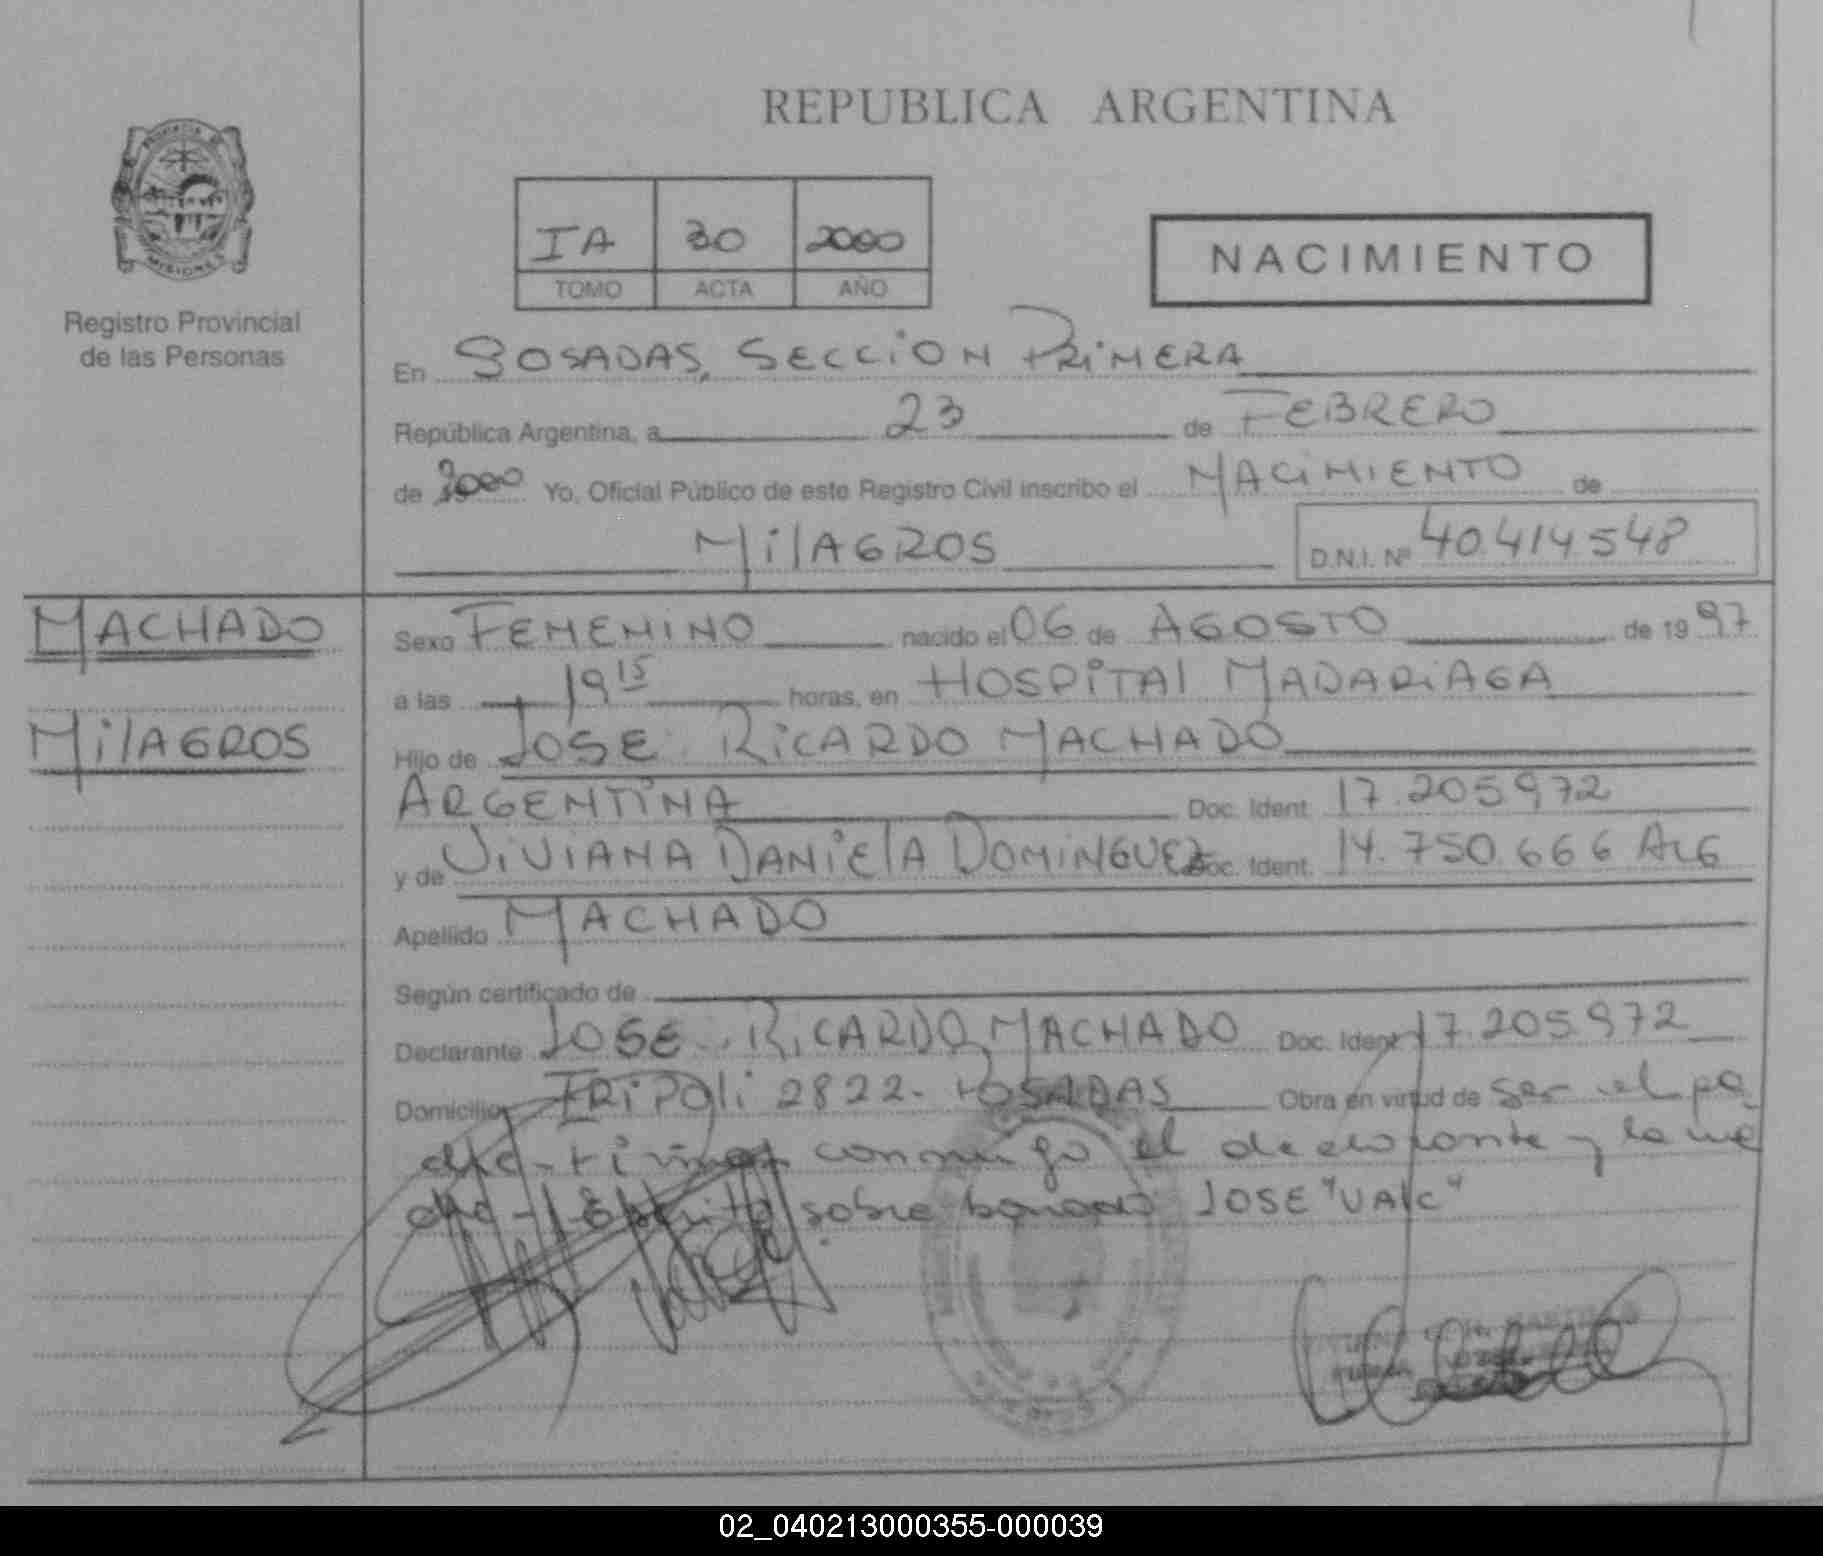 REPUBLICA ARGENTINA
PROVINCIA DE
MISIONES
Registro Provincial
de las Personas
IA 30 2000
TOMO ACTA AÑO
NACIMIENTO
En POSADAS, SECCION PRIMERA
República Argentina, a 23 de FEBRERO
de 2000 Yo, Oficial Público de este Registro Civil inscribo el NACIMIENTO de
MILAGROS D.N.I. Nº 40.414.548
MACHADO
MILAGROS
Sexo FEMENINO nacido el 06 de AGOSTO de 1997
a las 19 15 horas, en HOSPITAL MADARIAGA
Hijo de JOSE RICARDO MACHADO
ARGENTINA Doc. Ident. 17.205.972
y de VIVIANA DANIELA DOMINGUEZ Doc. Ident. 14.750.666 ARG
Apellido MACHADO
Según certificado de
Declarante JOSE RICARDO MACHADO Doc. Ident. 17.205.972
Domicilio TRIPOLI 2822- POSADAS Obra en virtud de ser el pa
dre - firman conmigo el declarante y la ma
dre - Escrito sobre borrado JOSE "VALE"
02_040213000355-000039